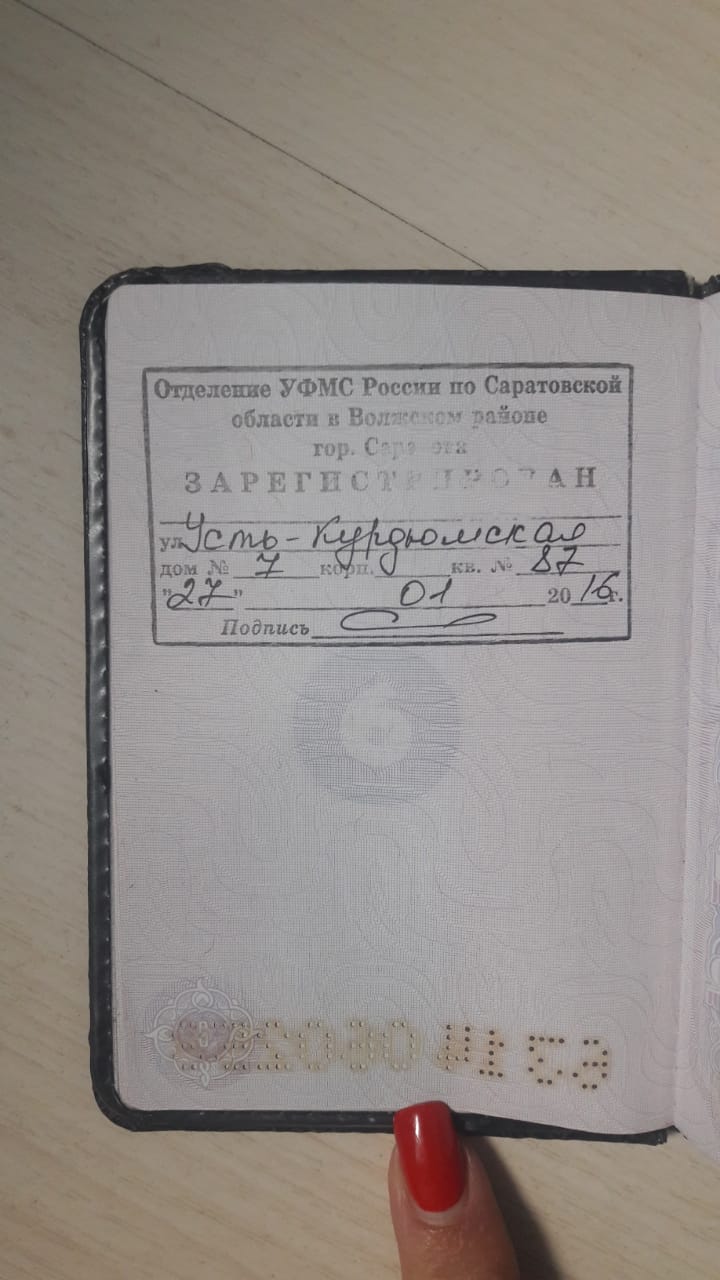 Отделение УФМС России по Саратовской
области в Волжском районе
гор. Саратова
ЗАРЕГИСТРИРОВАН
ул. Усть-Курдюмская
дом № 7 корп. кв. № 87
"27" 01 2016г.
Подпись